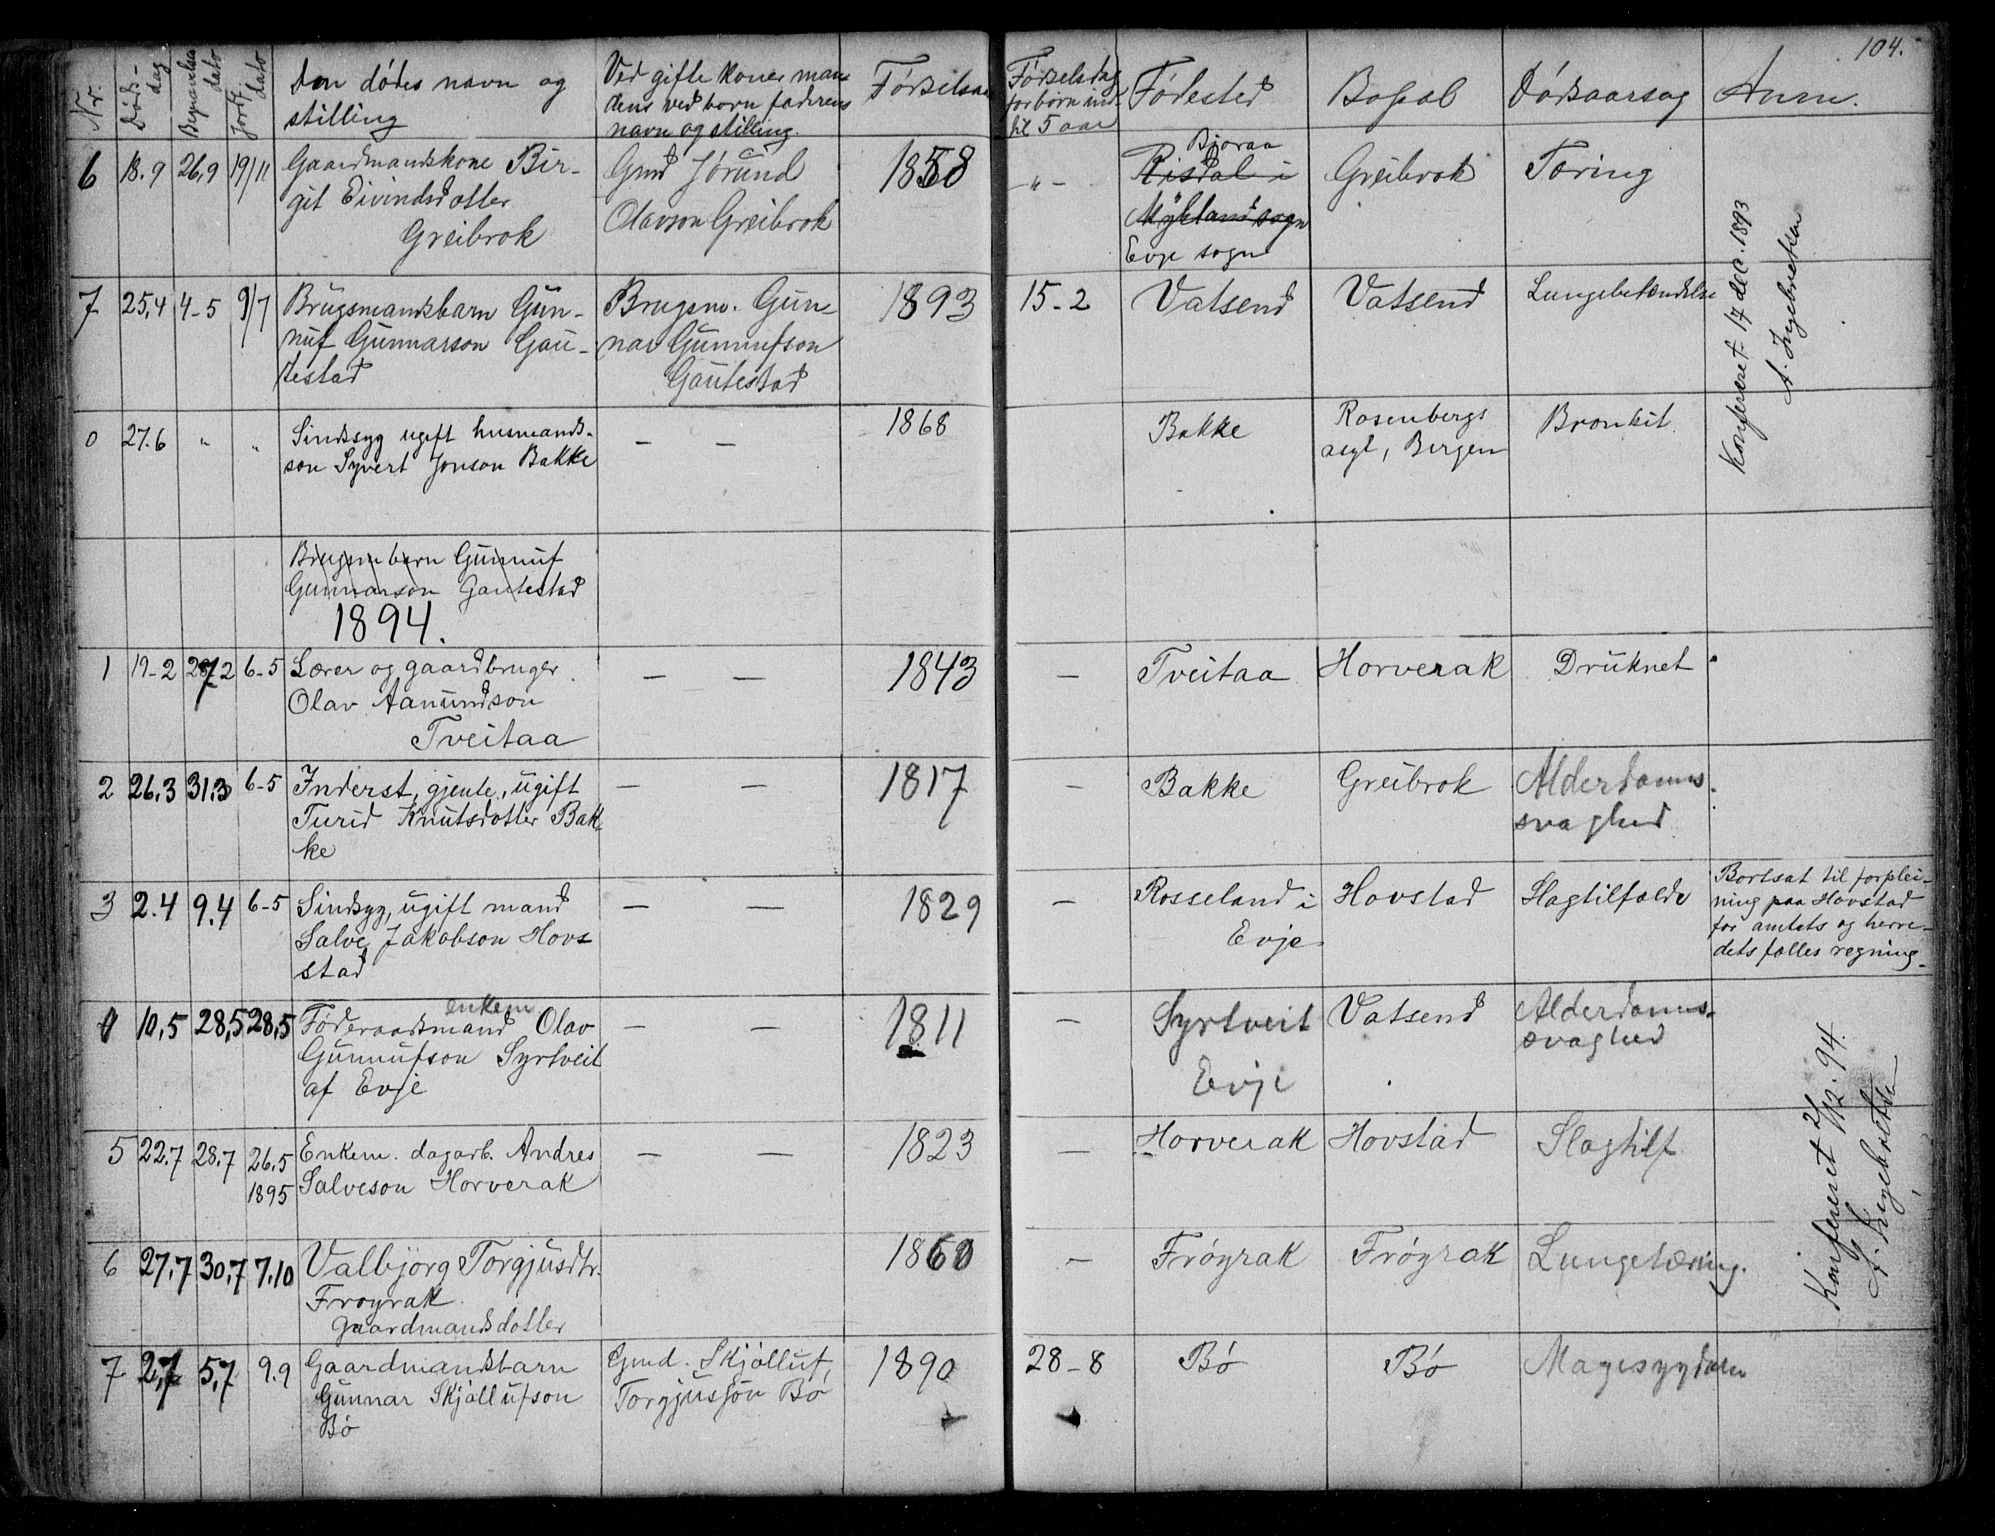 104.
Nr.
Døds-
dag
Begravelses
dato
Jordf.
dato
Den dødes navn og
stilling
Ved gifte koner man-
dens ved born faderens
navn og stilling.
Fødselsaar
Fødselsdag
for børn ind-
til 5 aar
Fødested
Bopæl
Dødsaarsag
Anm.
6 18.9 26.9 19/11
Gaardmandskone Bir-
git Eivindsdotter
Greibrok
Gmd Jørund
Olavson Greibrok
1858
-"-
Bjoraa
Risdal i
Myklandsogn
Evje sogn
Greibrok
Tæring
7 25.4 4-5 9/7
Brugsmandsbarn Gun-
nuf Gunnarson Gau-
testad
Brugsm. Gun-
nar Gunnufson
Gautestad
1893
15-2
Vatsend
Vatsend
Lungebetændelse
Konfereret 17 dec. 1893
A. Ingebretsen
0 27.6 " "
Sindssyg ugift husmands-
son Syvert Jonson Bakke
— —
1868
Bakke
Rosenbergs
asyl, Bergen
Bronkit.
Brugsm barn Gunnuf
Gunnarson Gautestad
1894.
1 19-2 28.2 6-5
Lærer og gaardbruger
Olav Aanundson
Tveitaa
— —
1843
—
Tveitaa
Horverak
Druknet
2 26.3 31.3 6-5
Inderst, gjente, ugift
Turid Knutsdotter Bak-
ke
— —
1817
—
Bakke
Greibrok
Alderdoms-
svaghed
3 2.4 9.4 6-5
Sindsyg, ugift mand
Salve Jakobson Hovs-
stad
— —
1829
—
Rosseland i
Evje
Hovstad
Slagtilfælde
Bortsat til forplei-
ning paa Hovstad
for amtets og herre-
dets fælles regning.
4 10.5 28.5 28.5
enkem
Føderaadsmand Olav
Gunnufson Syrtveit
af Evje
— —
1811
—
Syrtveit
Evje
Vatsend
Alderdoms-
svaghed
5 22.7 28.7 26.5
1895
Enkem. dagarb. Andres
Salveson Horverak
— —
1823
—
Horverak
Hovstad
Slagtilf
Konfereret 2/12. 94.
A. Ingebretsen
6 27.7 30.7 7.10
Valbjørg Torgjusdtr.
Froyrak
gaardmandsdotter
1860
—
Frøyrak
Frøyrak
Lungetæring.
7 2.7 5.7 9.9
Gaardmandsbarn
Gunnar Skjøllufson
Bø
Gmd. Skjølluf
Torgjusson Bø
1890
28-8
Bø
Bø
Mavesygdom